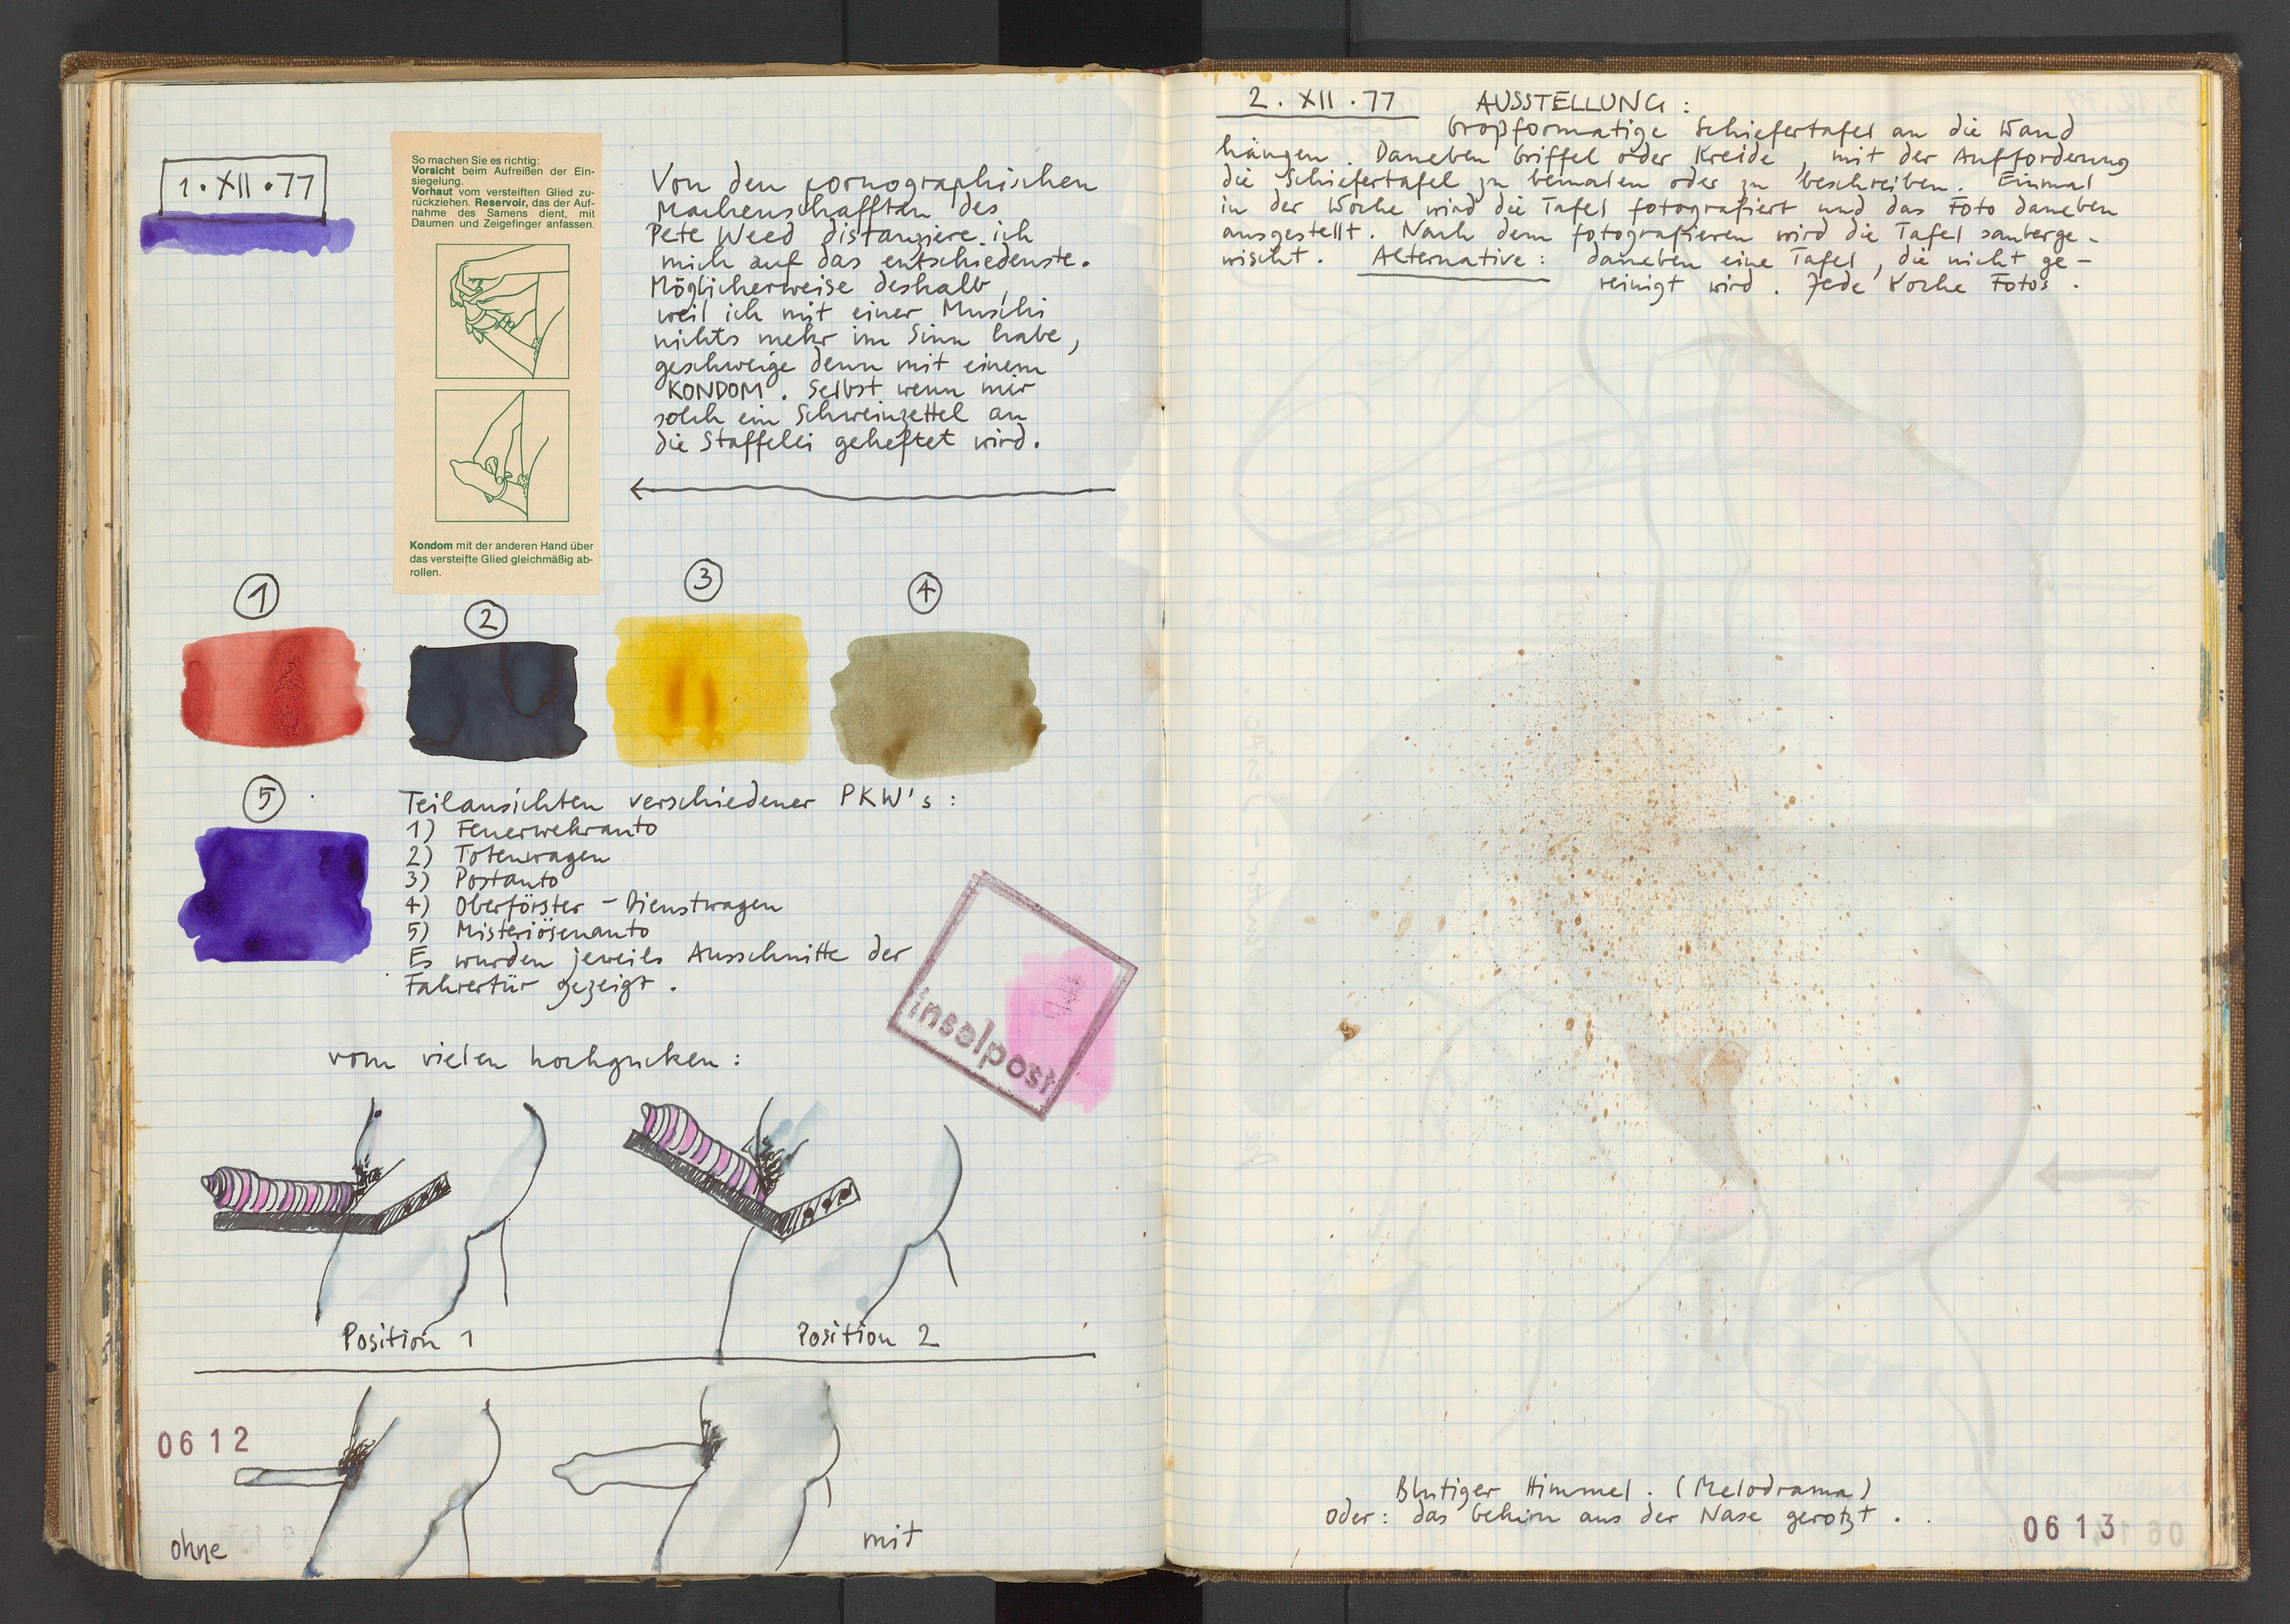 1.XII.77
So machen Sie es richtig:
Vorsicht beim Aufreißen der Ein-
siegelung.
Vorhaut vom versteiften Glied zu-
rückziehen. Reservoir, das der Auf-
nahme des Samens dient, mit
Daumen und Zeigefinger anfassen.
Kondom mit der anderen Hand über
das versteifte Glied gleichmäßig ab-
rollen.
Von den pornographischen
Machenschafften des
Pete Weed distanziere ich
mich auf das entschiedenste.
Möglicherweise deshalb,
weil ich mit einer Muschi
nichts mehr im Sinn habe,
geschweige denn mit einem
KONDOM. Selbst wenn mir
solch ein Schweinzettel an
die Staffelei geheftet wird.
1
2
3
4
5
Teilansichten verschiedener PKW's:
1) Feuerwehrauto
2) Totenwagen
3) Postauto
4) Oberförster - Dienstwagen
5) Misteriösenauto
Es wurden jeweils Ausschnitte der
Fahrertür gezeigt.
inselpost
vom vielen hochgucken:
Position 1
Position 2
0612
ohne
mit
2.XII.77
AUSSTELLUNG:
Großformatige Schiefertafel an die Wand
hängen. Daneben Griffel oder Kreide, mit der Aufforderung
die Schiefertafel zu bemalen oder zu beschreiben. Einmal
in der Woche wird die Tafel fotografiert und das Foto daneben
ausgestellt. Nach dem fotografieren wird die Tafel sauberge-
wischt. Alternative: daneben eine Tafel, die nicht ge-
reinigt wird. Jede Woche Fotos.
Blutiger Himmel. (Melodrama)
oder: das Gehirn aus der Nase gerotzt.
0613